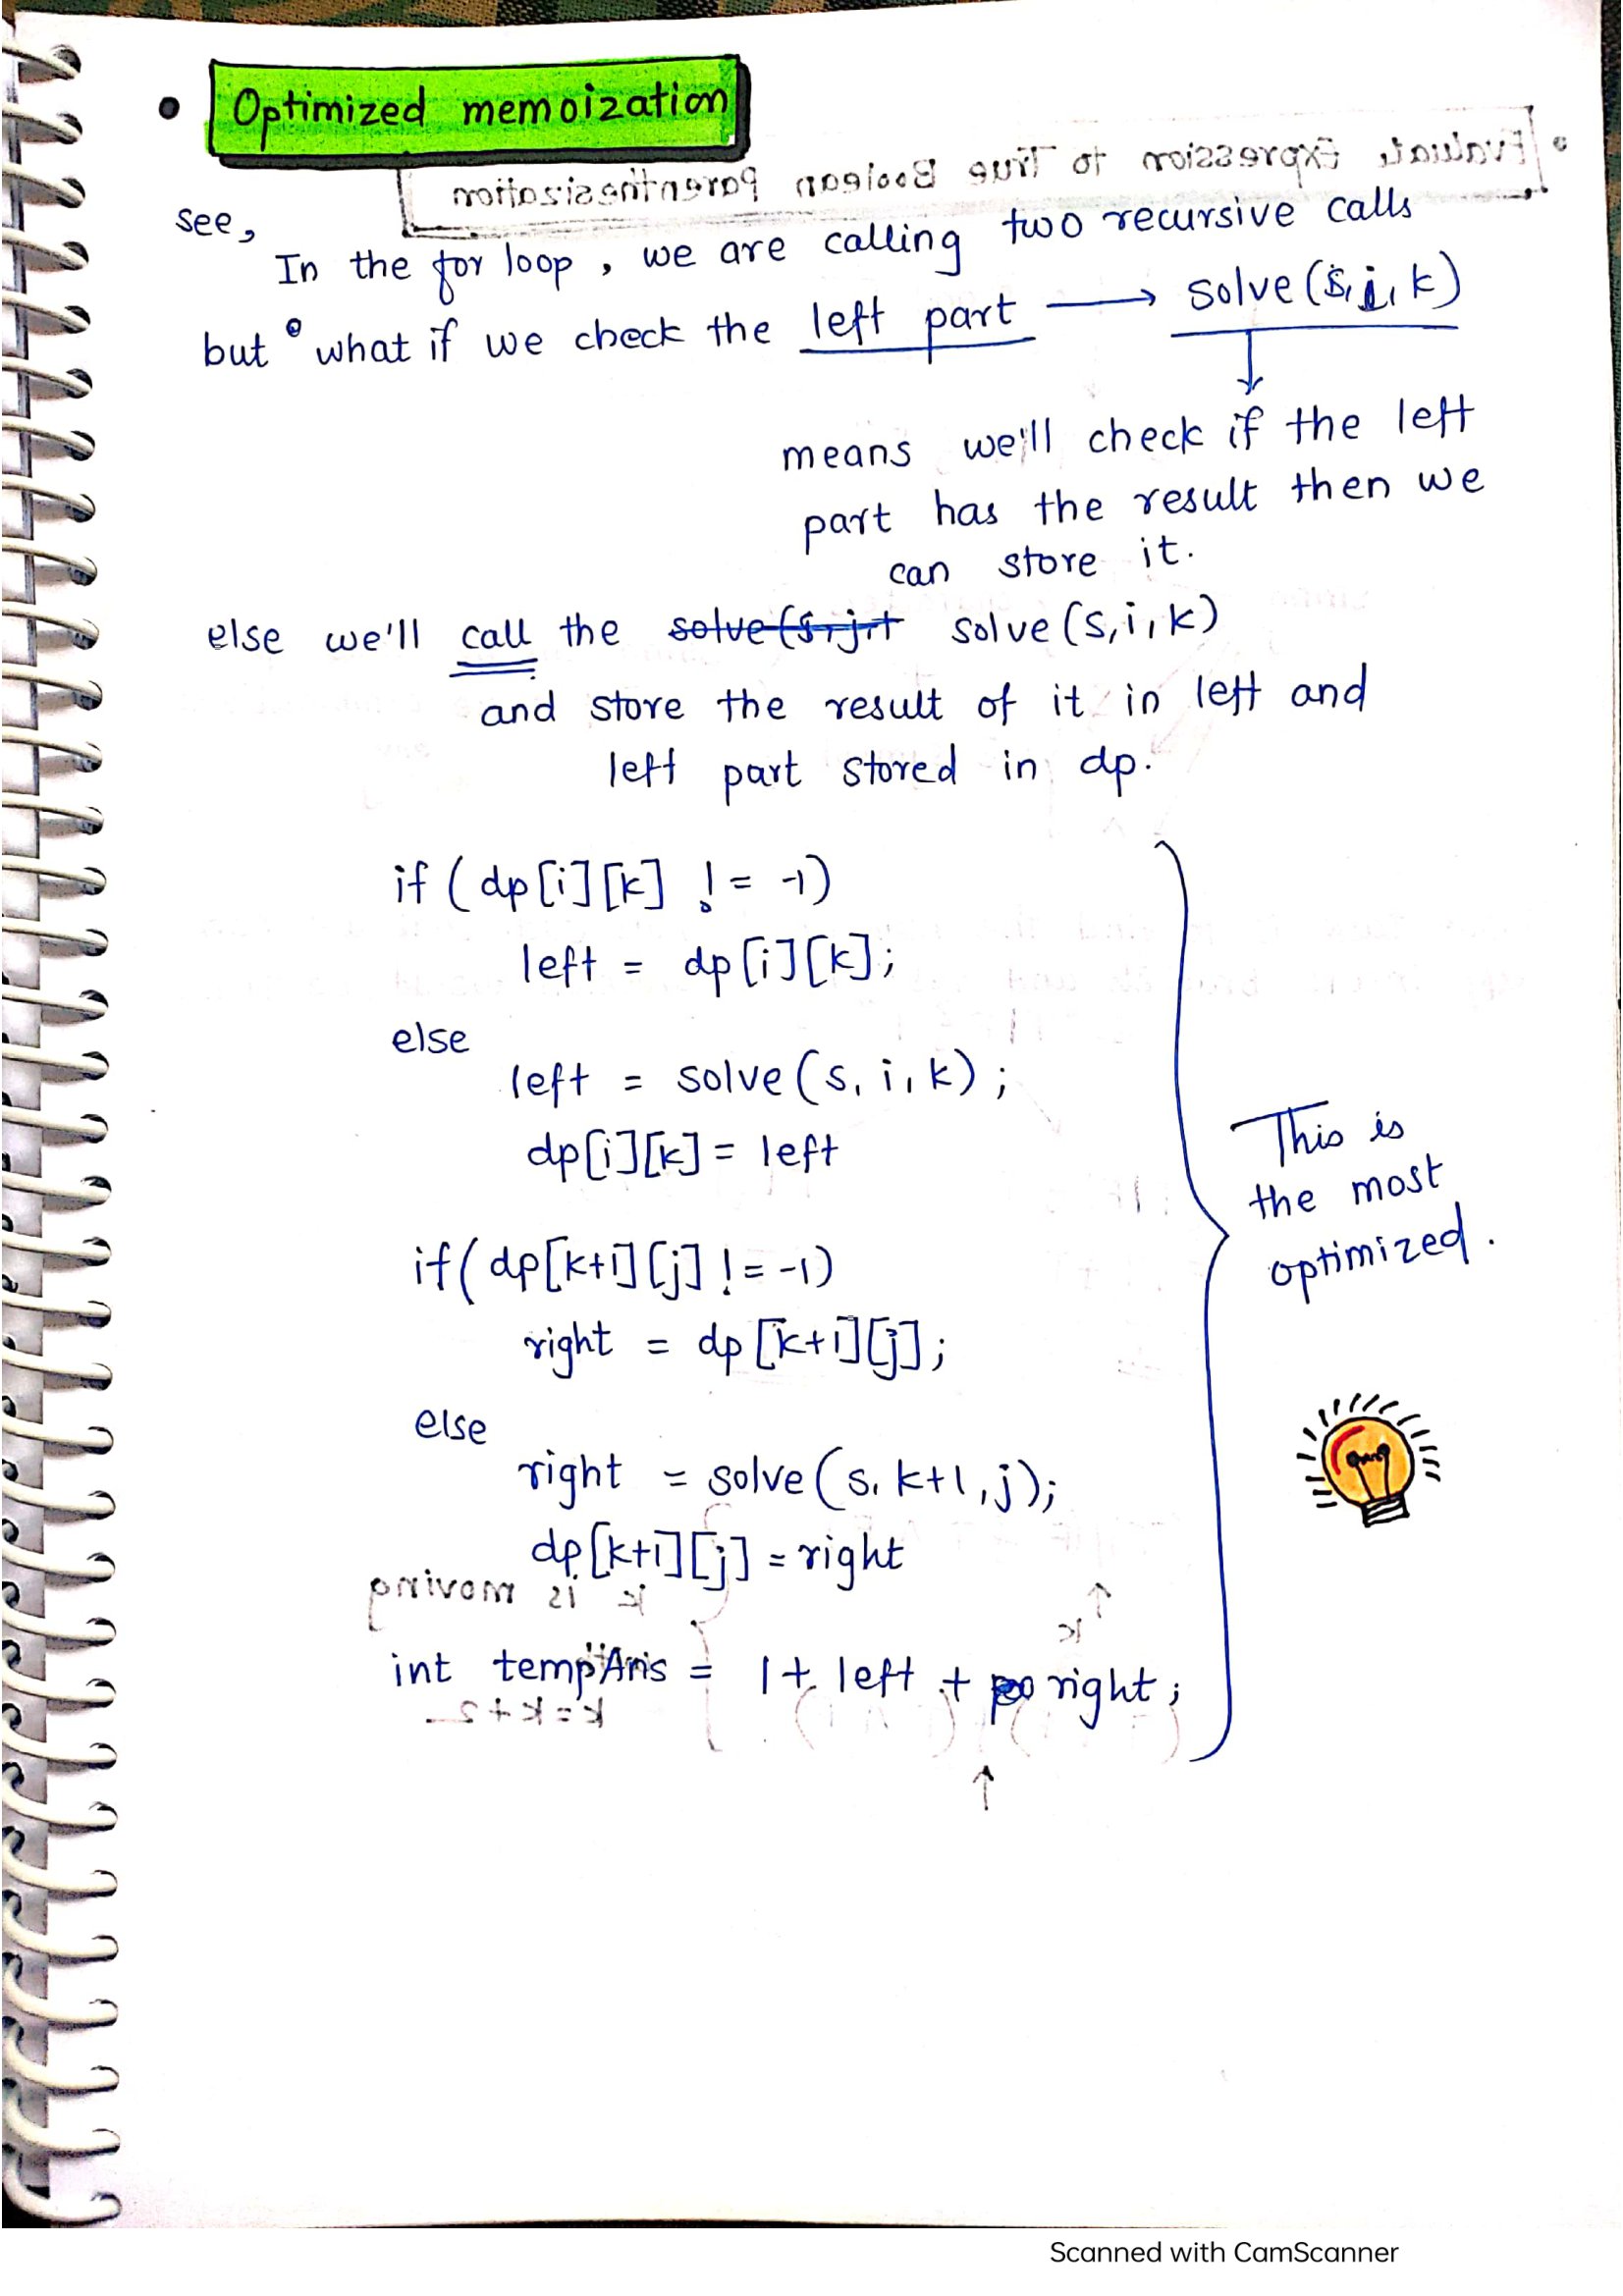 • Optimized memoization
see,
In the for loop, we are calling two recursive calls
but what if we check the left part → solve(s, i, k)
↓
means we'll check if the left
part has the result then we
can store it.
else we'll call the solve(s, j, + solve(s, i, k)
and store the result of it in left and
left part stored in dp.
if (dp[i][k] != -1)
left = dp[i][k];
else
left = solve(s, i, k);
dp[i][k] = left
if(dp[k+1][j] != -1)
right = dp[k+1][j];
else
right = solve(s, k+1, j);
dp[k+1][j] = right
int tempAns = 1 + left + right;
This is
the most
optimized.
Scanned with CamScanner